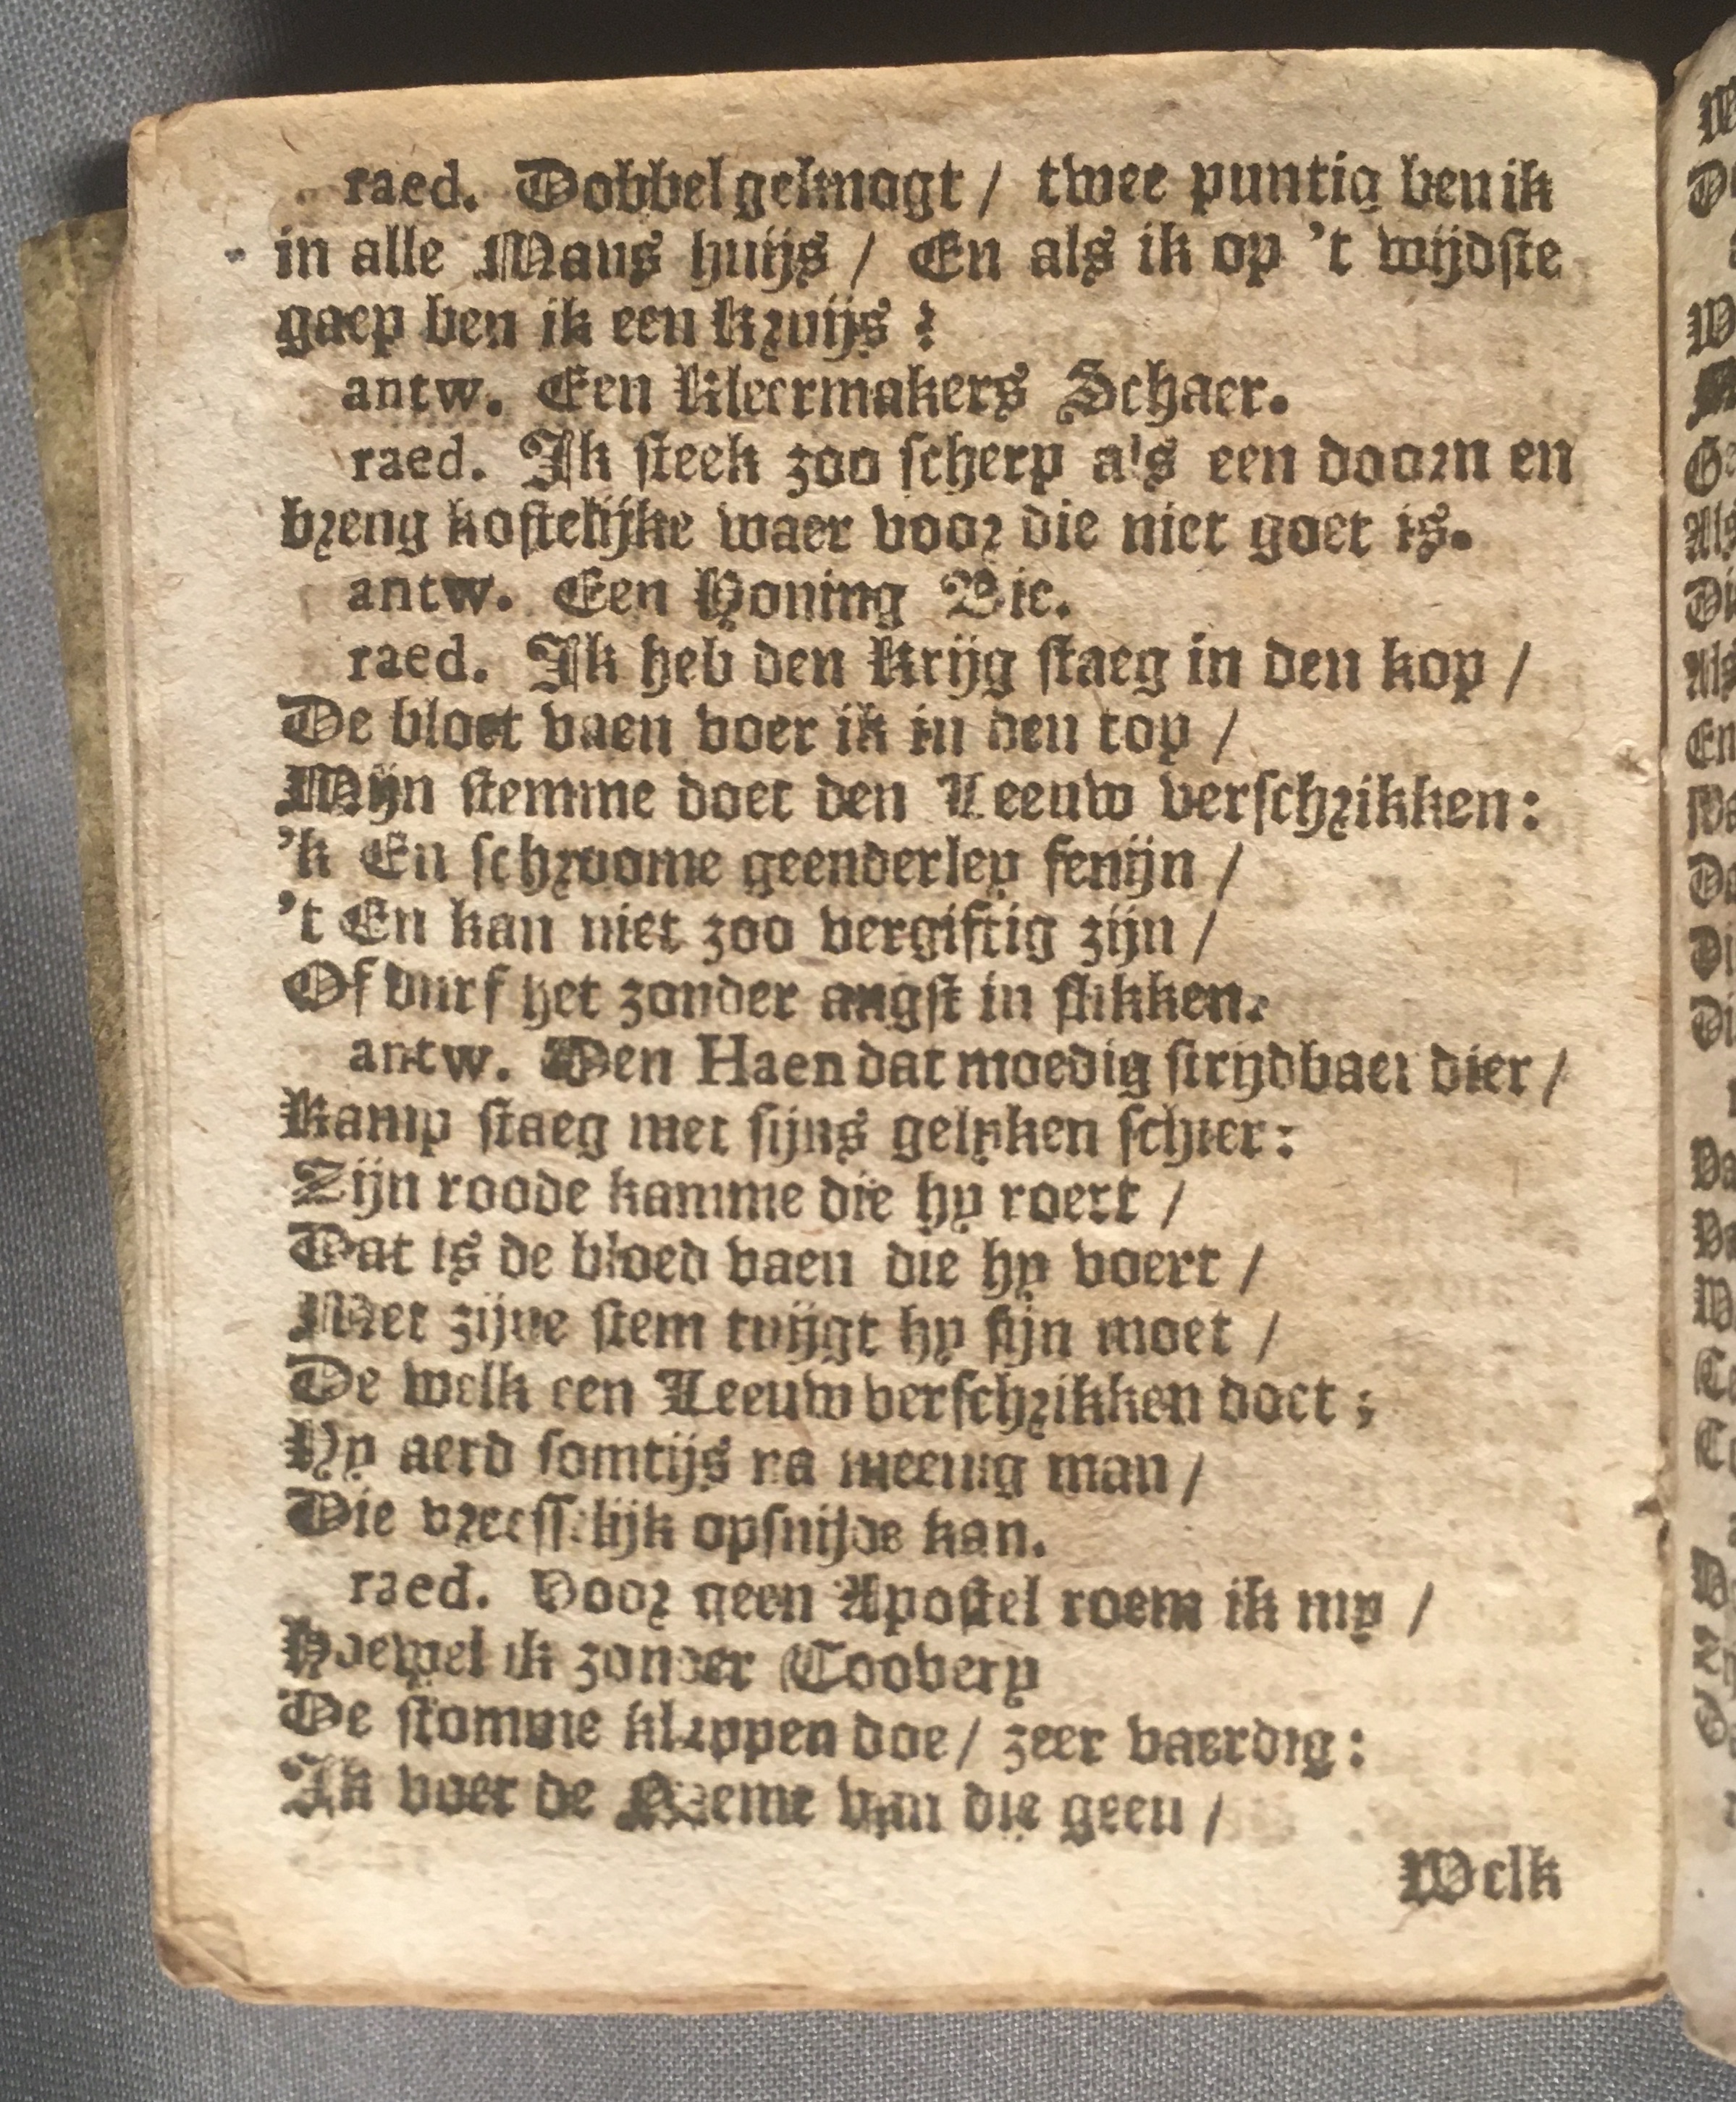 raed. Dobbel geknogt / twee puntig ben ik
in alle Mans huijs / En als ik op 't wijdste
gaep ben ik een kruijs?
antw. Een Kleermakers Schaer.
raed. Ik steek zoo scherp als een doorn en
breng kostelijke waer voor die niet goet is.
antw. Een Honing Bie.
raed. Ik heb den Krijg staeg in den kop /
De bloet vaen voer ik in den top /
Mijn stemme doet den Leeuw verschrikken:
'k En schroome geenderley fenijn /
't En kan niet zoo vergiftig zijn /
Of durf het zonder angst in slikken.
antw. Den Haen dat moedig strijdbaer dier /
Kamp staeg met sijns gelyken schier:
Zijn roode kamme die hy roert /
Dat is de bloed vaen die hy voert /
Met zijne stem tuijgt hy sijn moet /
De welk een Leeuw verschrikken doet;
Hy aerd somtijs na meenig man /
Die vreesselijk opsnijde kan.
raed. Voor geen Apostel roem ik my /
Hoewel ik zonder Toovery
De stomme klappen doe / zeer vaerdig:
Ik voer de van die geen /
Welk